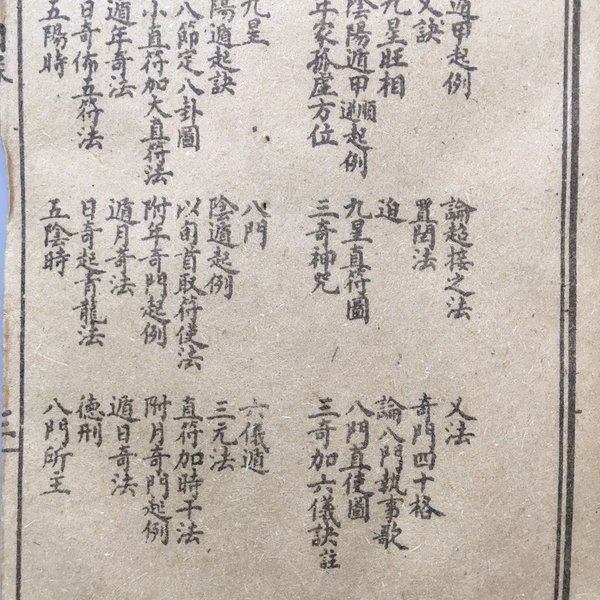 遁甲起例 論超接之法 又法
又訣 置閏法 奇門四十格
九星旺相 迫 論八門執事歌
陰陽遁甲順逆起例 九星直符圖 八門直使圖
年家孤虛方位 三奇神咒 三奇加六儀訣註
九星 八門 六儀遁
陽遁起訣 陰遁起例 三元法
八節定八卦圖 以旬首取符使法 直符加時干法
小直符加大直符法 附年奇門起例 附月奇門起例
遁年奇法 遁月奇法 遁日奇法
日奇佈五符法 日奇起青龍法 德刑
五陽時 五陰時 八門所主